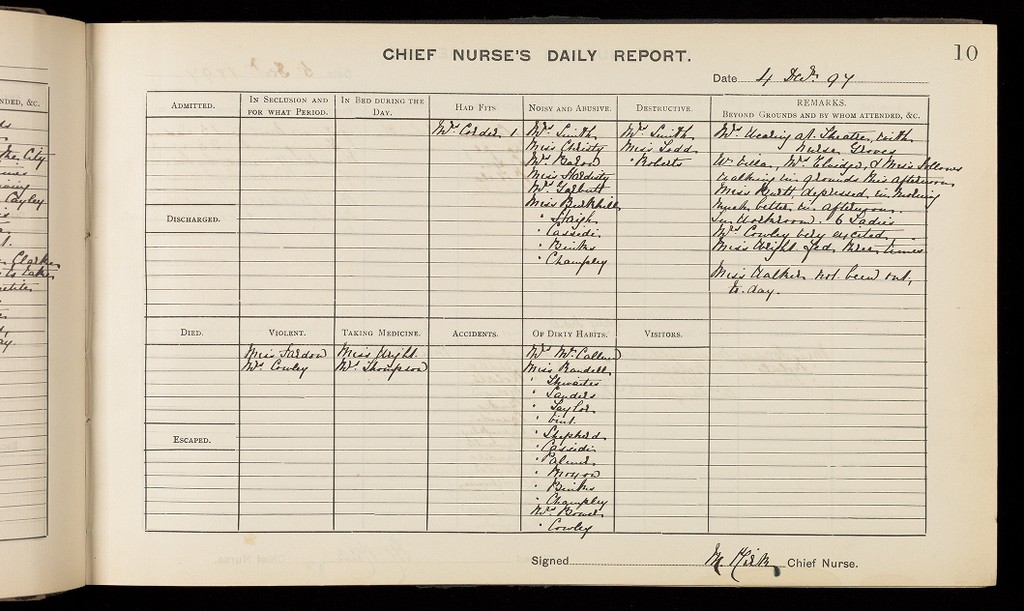 NDED, &C.
the City
Cayley
CHIEF NURSE'S DAILY REPORT.
10
Date 4 Decr. 97
ADMITTED.
IN SECLUSION AND FOR WHAT PERIOD.
IN BED DURING THE DAY.
HAD FITS
NOISY AND ABUSIVE.
DESTRUCTIVE.
REMARKS.
BEYOND GROUNDS AND BY WHOM ATTENDED, &C.
Mrs Corder 1
Mrs Smith
Miss Christy
Mrs
Miss Hardisty
Mrs Garbutt
Miss Burkhill
" Haigh
" Cassidi
" Binks
" Champley
Mrs Smith
Miss Todd
" Roberts
Mrs Wearing at Theatre with
Nurse Groves
W. Villa, Mrs Elvidge, & Miss Fellows
walking in grounds this afternoon
Miss Burtt, depressed, in morning
much better in afternoon.
In Workroom. 6 Ladies
Mrs Cowley very excited
Miss Wright fed three times
Miss Walker not been out,
to-day.
DISCHARGED.
DIED.
VIOLENT.
TAKING MEDICINE.
ACCIDENTS.
OF DIRTY HABITS.
VISITORS.
Miss
Mrs Cowley
Miss Wright.
Mrs Thompson
Mrs
Miss Randell
" Thwaites
" Sanders
" Taylor
"
" Shepherd
" Cassidi
" Palmer
" Moxon
" Binks
" Champley
Mrs Bowes
" Cowley
ESCAPED.
Signed M. Kirk Chief Nurse.